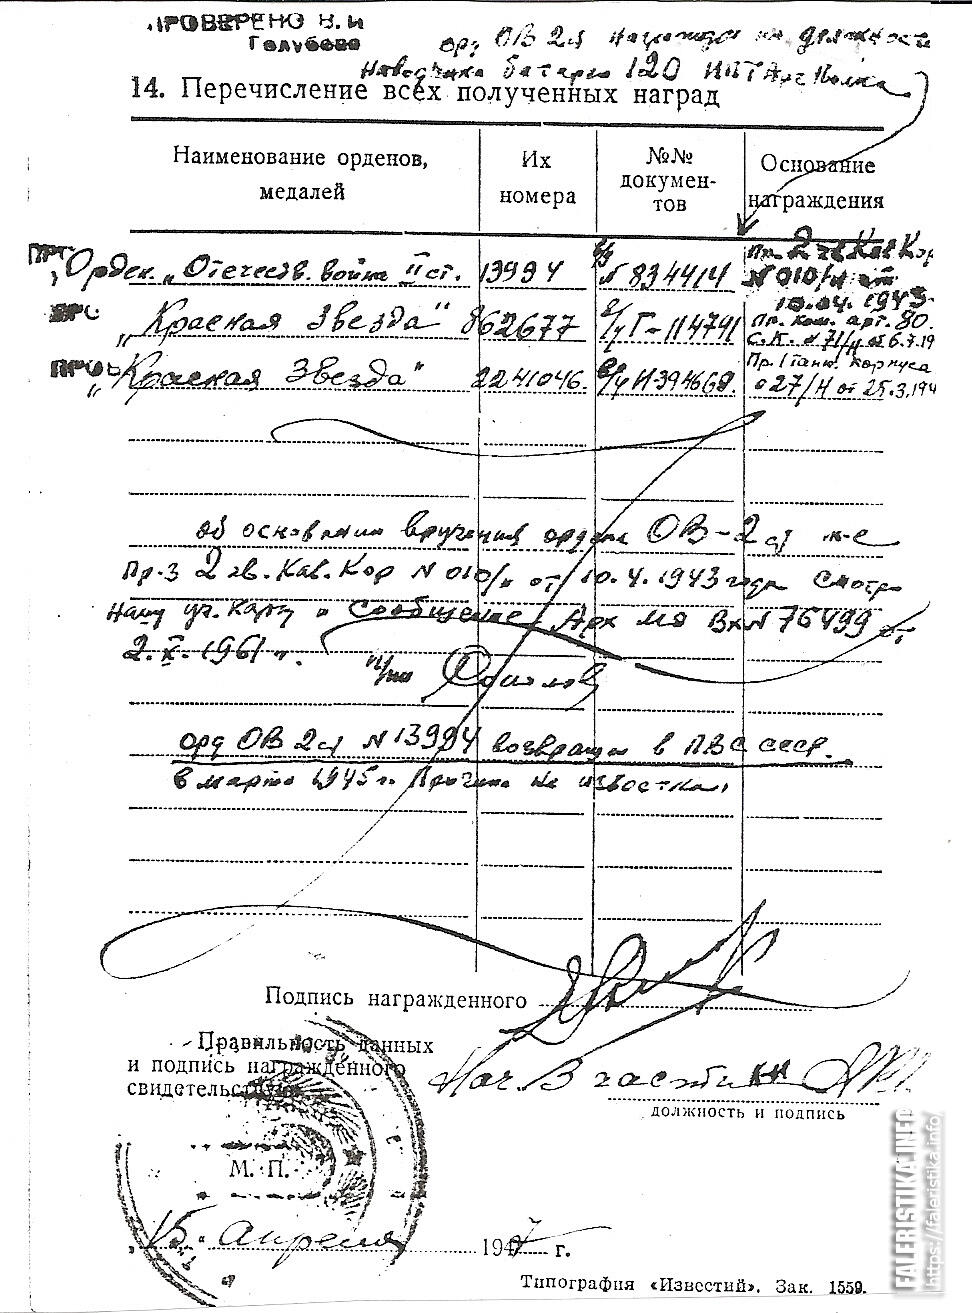 ПРОВЕРЕНО В. И
Голубева
орд ОВ 2 ст награжден на должности
Наводчика батареи 120 ИПТАрт Полка
14. Перечисление всех полученных наград
Наименование орденов, медалей
Их номера
№№ документов
Основание награждения
Орден „Отечеств. война II ст. 13994 № 834414 Пр. 2 гв Кав Кор № 010/н от 10.04.1943
„Красная Звезда" 862677 Г-114741 Пр. ком. арт. 80. С.К. № 71/н от 6.7.19
„Красная Звезда" 2241046. И-394668. Пр. 1 танк. корпуса № 27/н от 25.3.194
об основании вручения ордена ОВ-2 ст
Пр-з 2 гв. Кав. Кор N 010/н от 10.4.1943 года смотр
нашу уч. карту и сообщение Арх МО Вх N 76499 от
2.X.1961 г.
орд ОВ 2 ст N 13994 возвращен в ПВС СССР.
в марте 1945 г. Причина не известна
Подпись награжденного
Правильность данных
и подпись награжденного
свидетельствую
Нач. 3 части
должность и подпись
М. П.
15. апреля 1947 г.
Типография «Известий». Зак. 1559.
FALERISTIKA.INFO
https://faleristika.info/